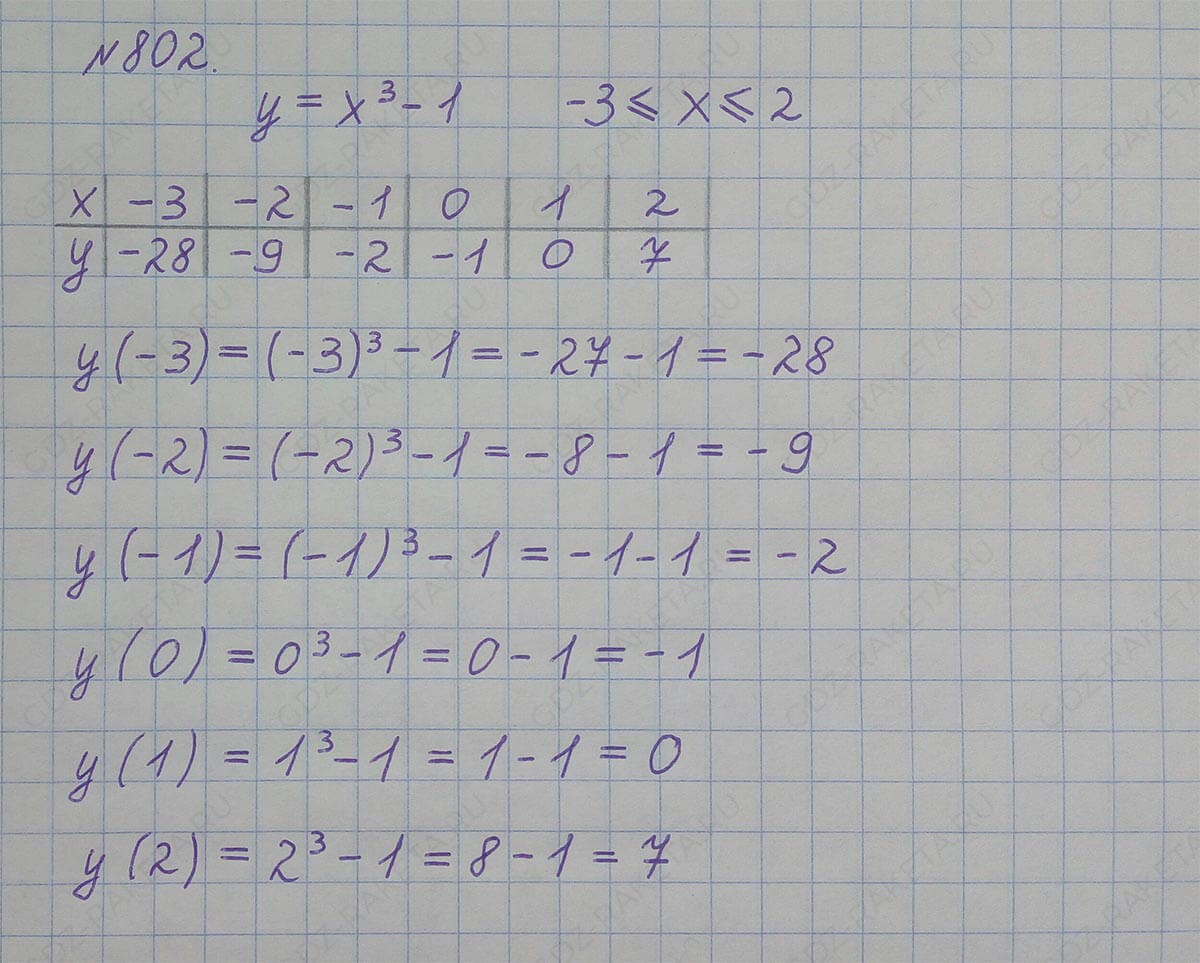 №802.
y = x³ - 1 -3 ≤ x ≤ 2
x -3 -2 -1 0 1 2
y -28 -9 -2 -1 0 7
y(-3) = (-3)³ - 1 = -27 - 1 = -28
y(-2) = (-2)³ - 1 = -8 - 1 = -9
y(-1) = (-1)³ - 1 = -1 - 1 = -2
y(0) = 0³ - 1 = 0 - 1 = -1
y(1) = 1³ - 1 = 1 - 1 = 0
y(2) = 2³ - 1 = 8 - 1 = 7
GDZ-RAKETA.RU